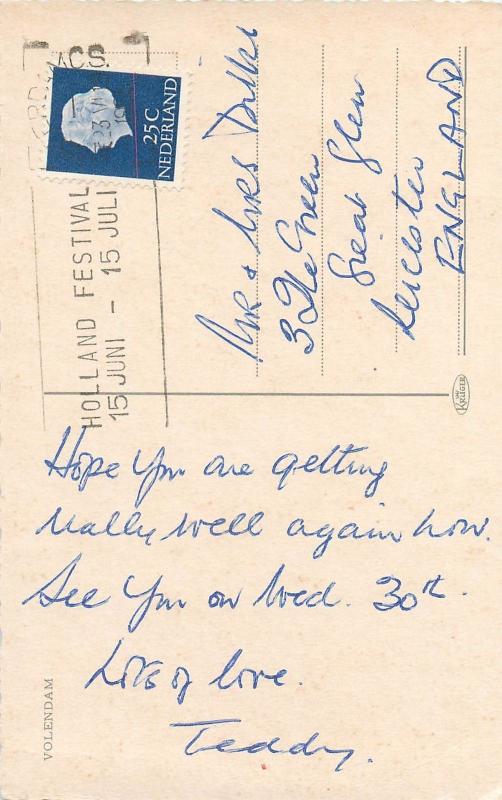 25 C
NEDERLAND
HOLLAND FESTIVAL
15 JUNI - 15 JULI
Mr & Mrs
3 The Green
Great Glen
Leicester
ENGLAND
KRÜGER
Hope you are getting
really well again now.
See you on Wed. 30th.
Lots of love.
Teddy.
VOLENDAM